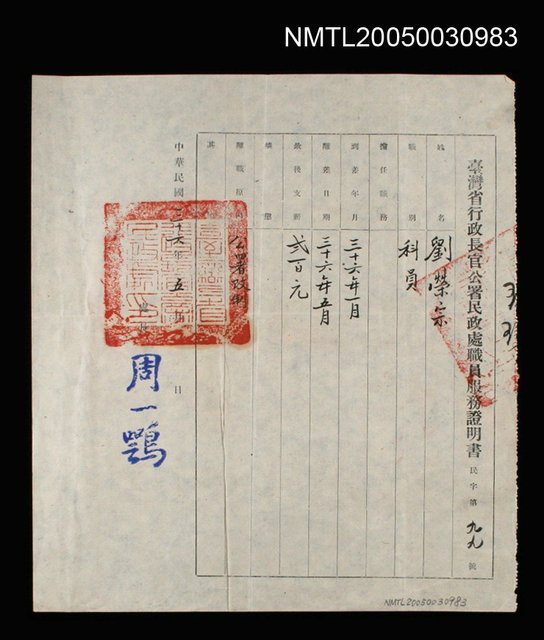 NMTL20050030983
臺灣省行政長官公署民政處職員服務證明書 民字第 九九 號
姓名 劉榮宗
職別 科員
擔任職務
到差年月 三十六年一月
離差日期 三十六年五月
最後支薪 貳百元
離職原因 公署改制
其
中華民國三十六年五月 日
周一鶚
NMTL20050030983